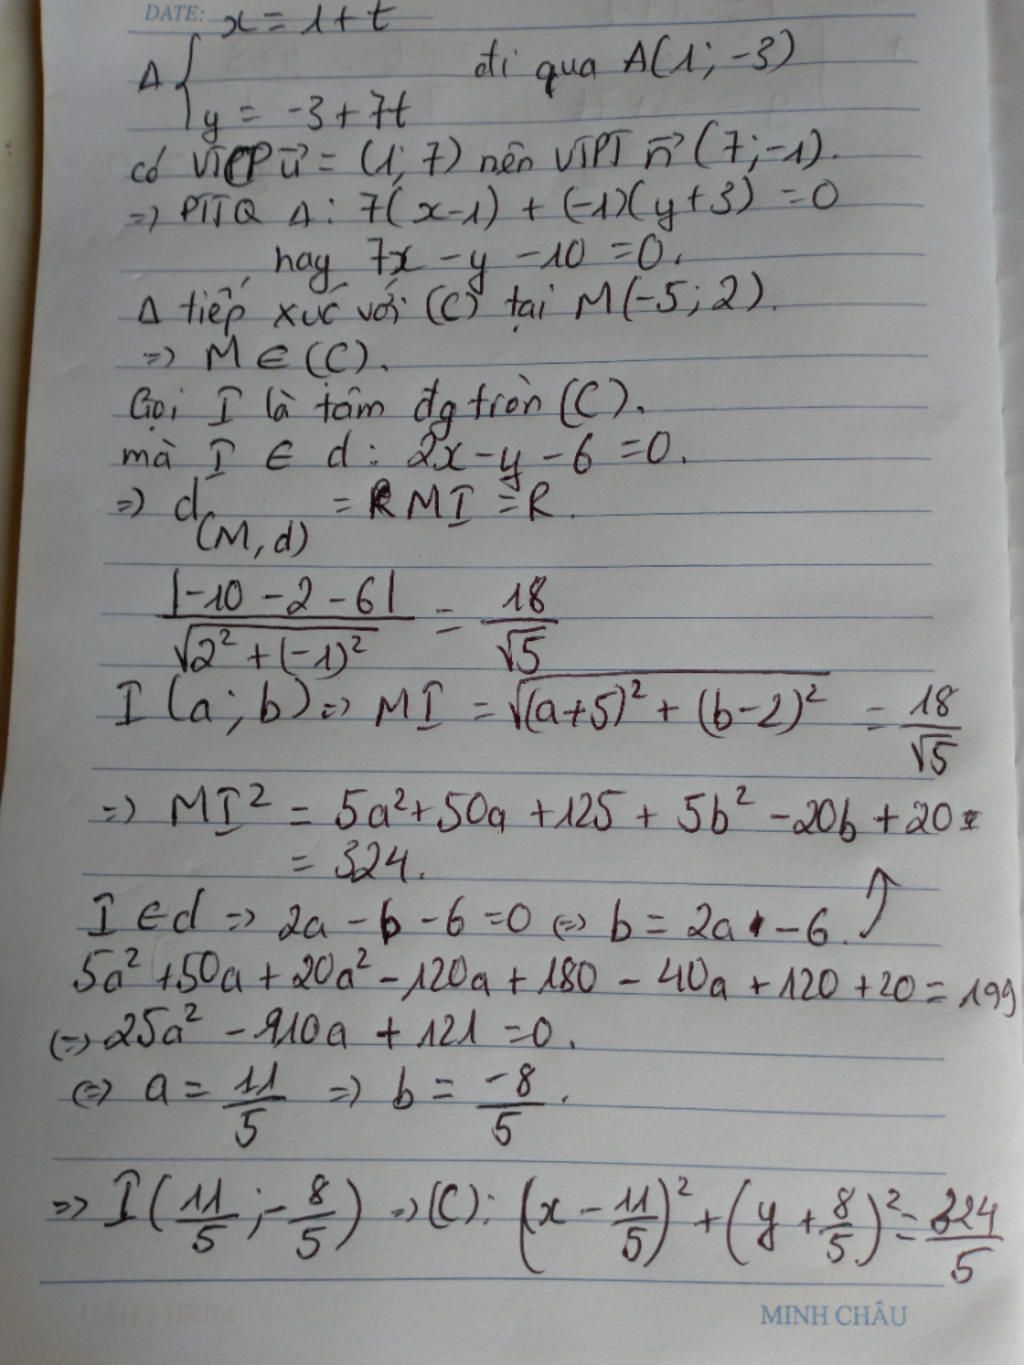 DATE: x = 1 + t
Δ { đi qua A(1; -3)
y = -3 + 7t
có VTCP u⃗ = (1; 7) nên VTPT n⃗ (7; -1).
=> PTTQ Δ: 7(x-1) + (-1)(y+3) = 0
hay 7x - y - 10 = 0.
Δ tiếp xúc với (C) tại M(-5; 2).
=> M ∈ (C).
Gọi I là tâm đg tròn (C).
mà I ∈ d: 2x - y - 6 = 0.
=> d(M, d) = MI = R.
|-10 - 2 - 6| / √(2² + (-1)²) = 18/√5
I (a; b) => MI = √((a+5)² + (b-2)²) = 18/√5
=> MI² = 5a² + 50a + 125 + 5b² - 20b + 20
= 324.
I ∈ d => 2a - b - 6 = 0 <=> b = 2a - 6.
5a² + 50a + 20a² - 120a + 180 - 40a + 120 + 20 = 199
<=> 25a² - 110a + 121 = 0.
<=> a = 11/5 => b = -8/5.
=> I(11/5; -8/5) => (C): (x - 11/5)² + (y + 8/5)² = 324/5
MINH CHÂU